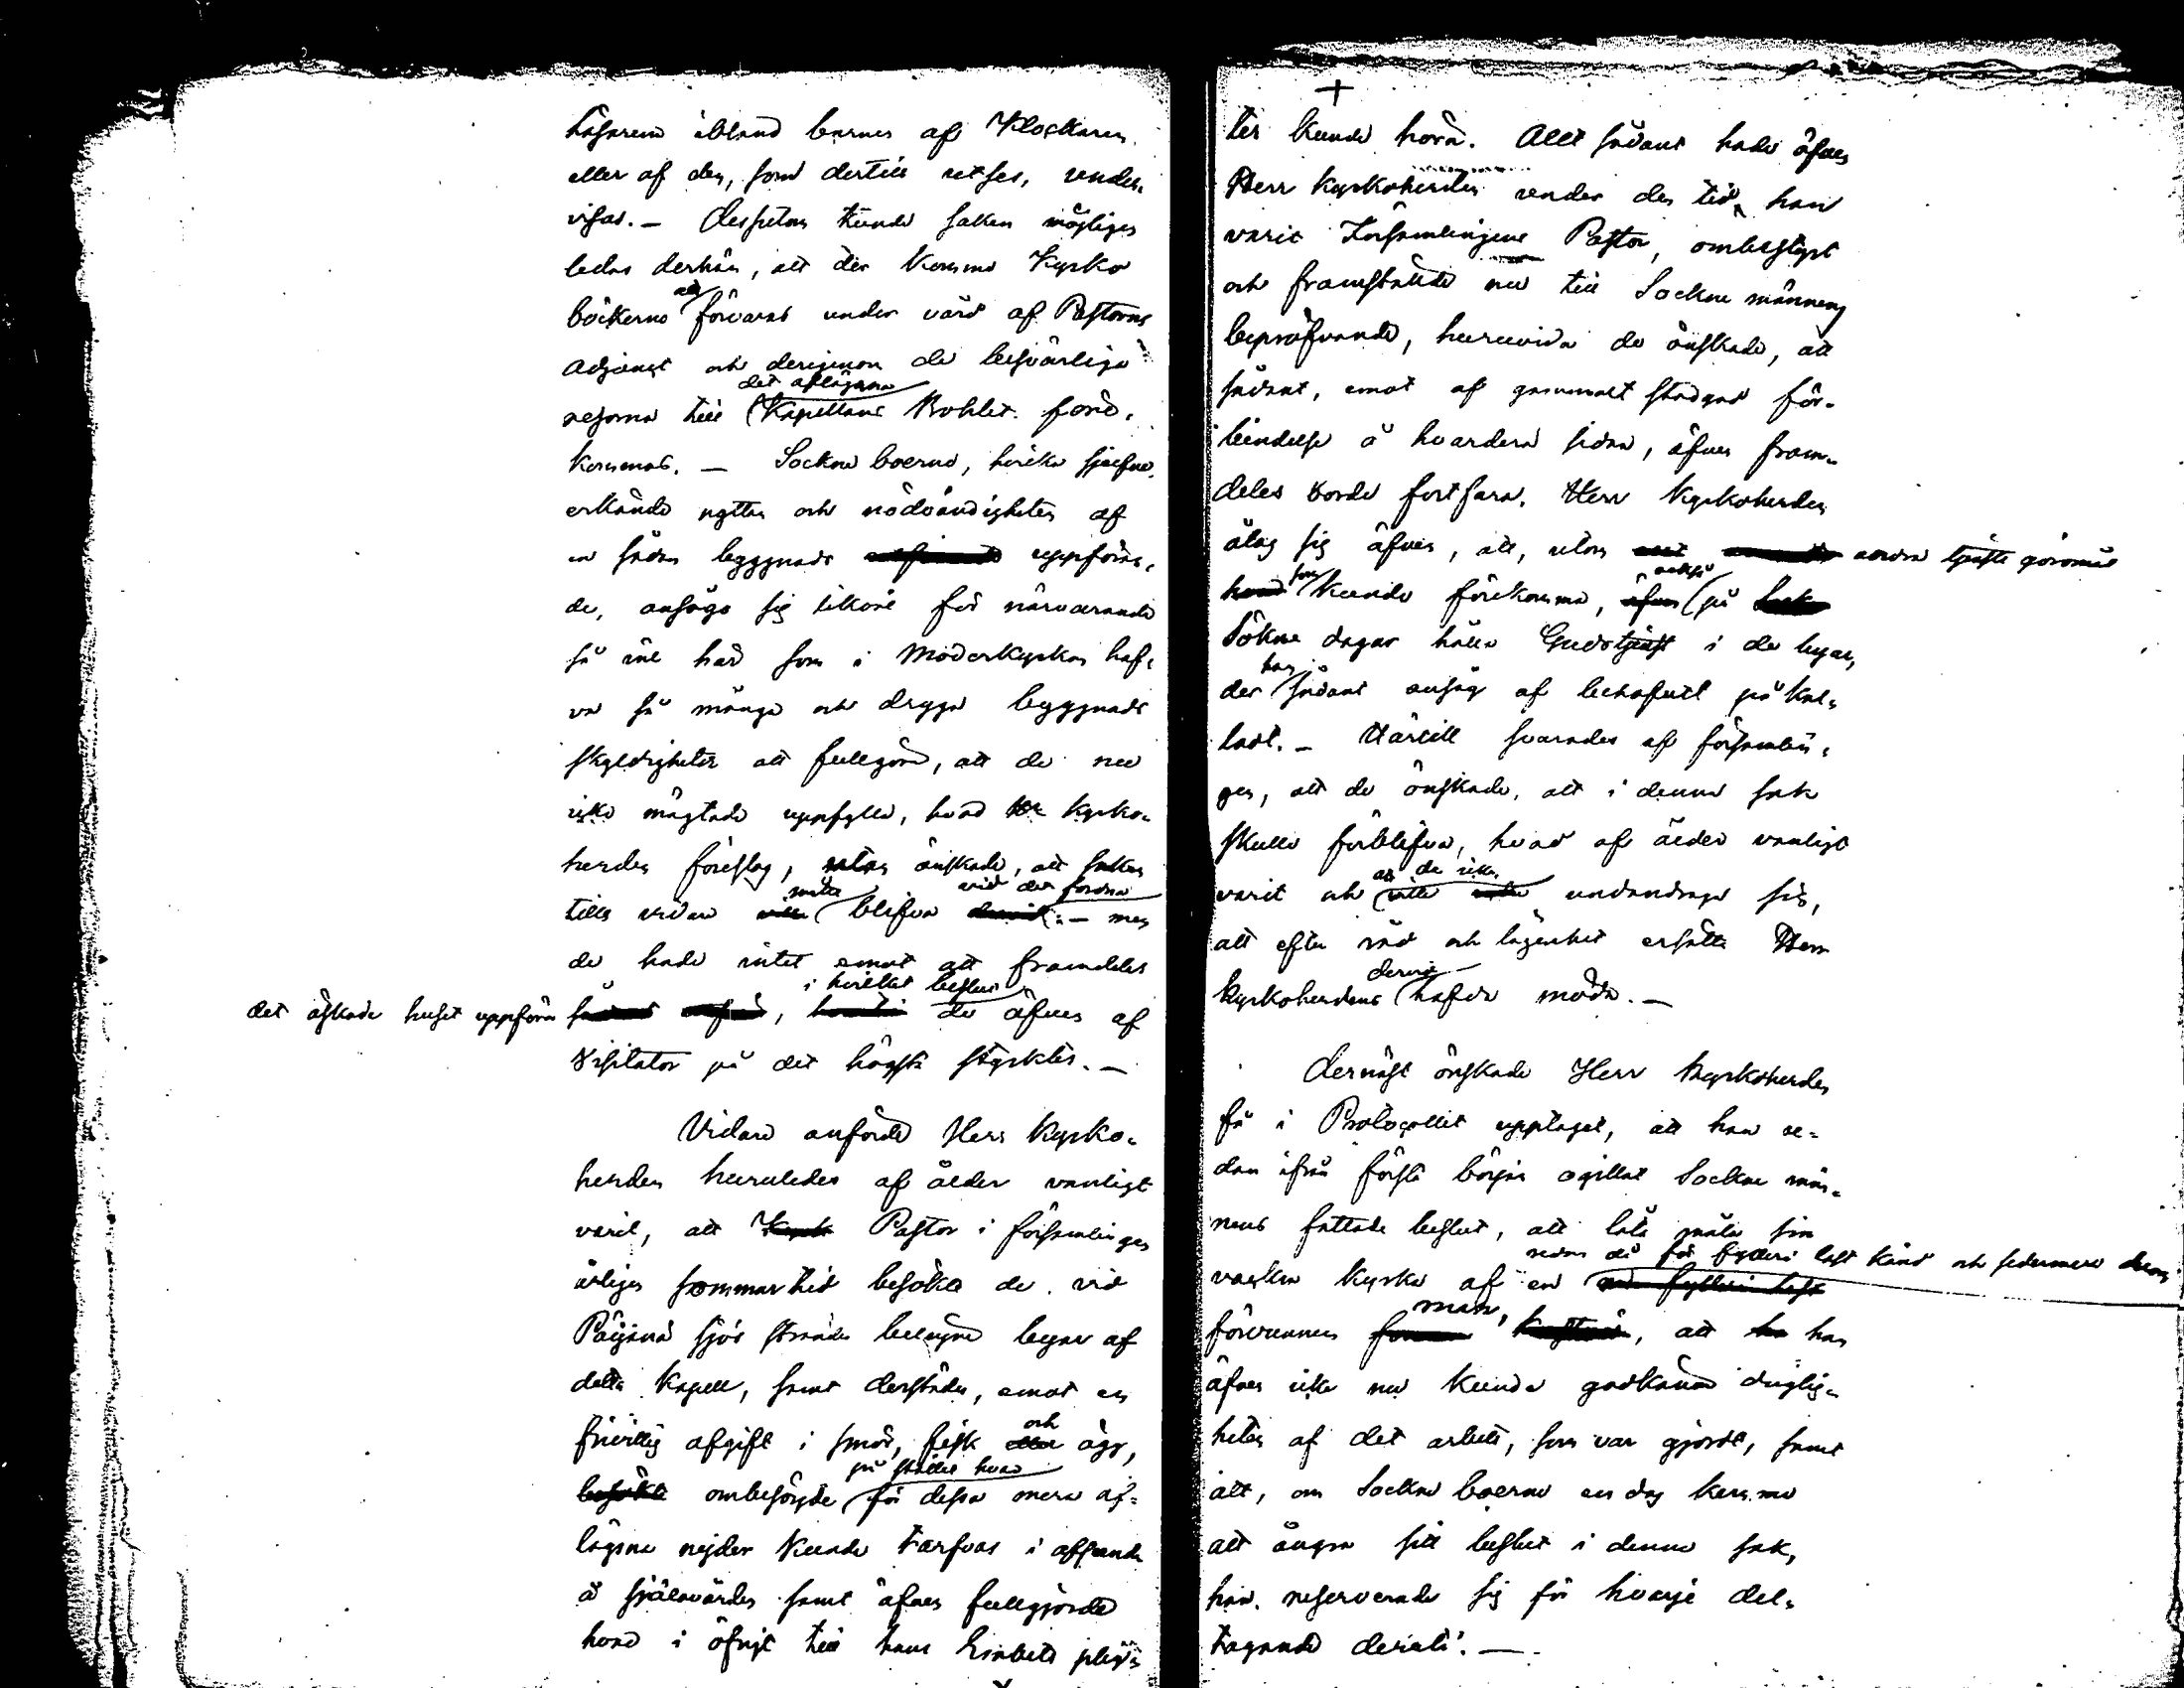 ibland barnen af Klockaren
eller af den, som dertill utses, under-
visas. — Dessutom kunde saken möjligen
ledas derhän, att der komme Kyrko
böckerne att förvaras under vård af Pastorns
Adjunct och derigenom de besvärliga
resorna till det aflägsna Kapellans Bohlet före-
kommas. — Sockne boerne, hvilka sjelfve
erkände nyttan och nödvändigheten af
en sådan byggnads uppföran-
de, ansågo sig likväl för närvarande
så väl här som i Moderkyrkan haf-
va så många och dryga byggnads
skyldigheter att fullgöra, att de nu
icke mägtade uppfylla, hvad Kyrko-
herden föreslog, utan önskade, att saken
tills vidare måtte blifva vid det fordna — men
de hade intet emot att framdeles
det äskade huset uppföra, i hvilket beslut de äfven af
Visitator på det högsta styrktes. —
Vidare anförde Herr Kyrko-
herden huruledes af ålder vanligt
varit, att Pastor i församlingen
årligen sommartid besöka de vid
Päijänä sjös stränder belägne byar af
detta Kapell, samt derstädes, emot en
frivillig afgift i smör, fisk och ägg,
ombesörjde på stället hvad för dessa mera af-
lägsna nejder kunde tarfvas i afseende
å själavården samt äfven fullgjorde
hvad i öfrigt till hans Embets plig-
ter kunde höra. Allt sådant hade äfven
Herr Kyrkoherden under den tid, han
varit Församlingens Pastor, ombestyrt
och framställde nu till Sockne männens
bepröfvande, huruvida de önskade, att
sådant, emot af gammalt stadgad för-
bindelse å hvardera sidan, äfven fram-
deles borde fortfara. Herr Kyrkoherden
åtog sig äfven, att, utom andra tjenste göromål
som kunde förekomma, också på
Sökne dagar hålla Gudstjenst i de byar,
der han sådant ansåg af behofvet påkal-
ladt. — Härtill svarades af församlin-
gen, att de önskade, att i denna sak
skulle förblifva, hvad af ålder vanligt
varit och att de icke ville undandraga sig,
att efter råd och lägenhet ersätta Herr
Kyrkoherdens dervid hafda möda. —
Dernäst önskade Herr Kyrkoherden
få i Protocollet upptaget, att han re-
dan ifrån första början ogillat Sockne män-
nens fattade beslut, att låta måla sin
vackra Kyrka af en redan då för fylleri last känd och sedermera derom
förvunnen man, att han
äfven icke nu kunde godkänna duglig-
heten af det arbete, som var gjordt, samt
att, om Sockne boerne en dag komme
att ångra sitt beslut i denna sak,
han reserverade sig för hvarje del-
tagande deruti. —